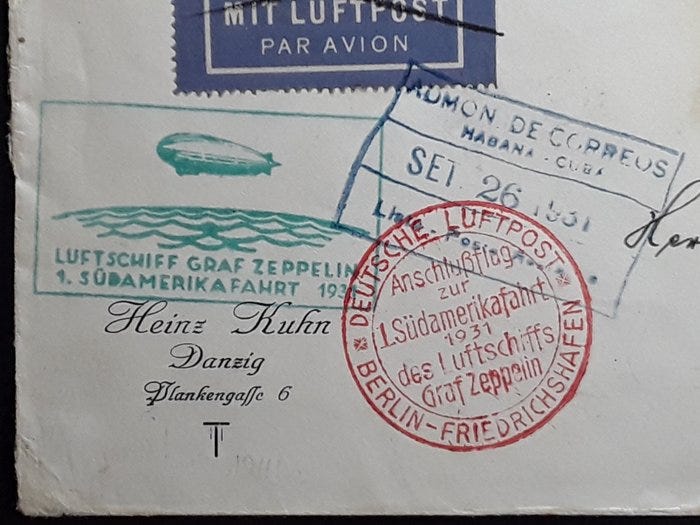 MIT LUFTPOST
PAR AVION
ADMON. DE CORREOS
HABANA - CUBA
SET 26 1931
LUFTSCHIFF GRAF ZEPPELIN
1. SÜDAMERIKAFAHRT 1931
DEUTSCHE LUFTPOST
Anschlußflug
zur
1.Südamerikafahrt
1931
des Luftschiffs
Graf Zeppelin
BERLIN-FRIEDRICHSHAFEN
Heinz Kuhn
Danzig
Plankengasse 6
Her